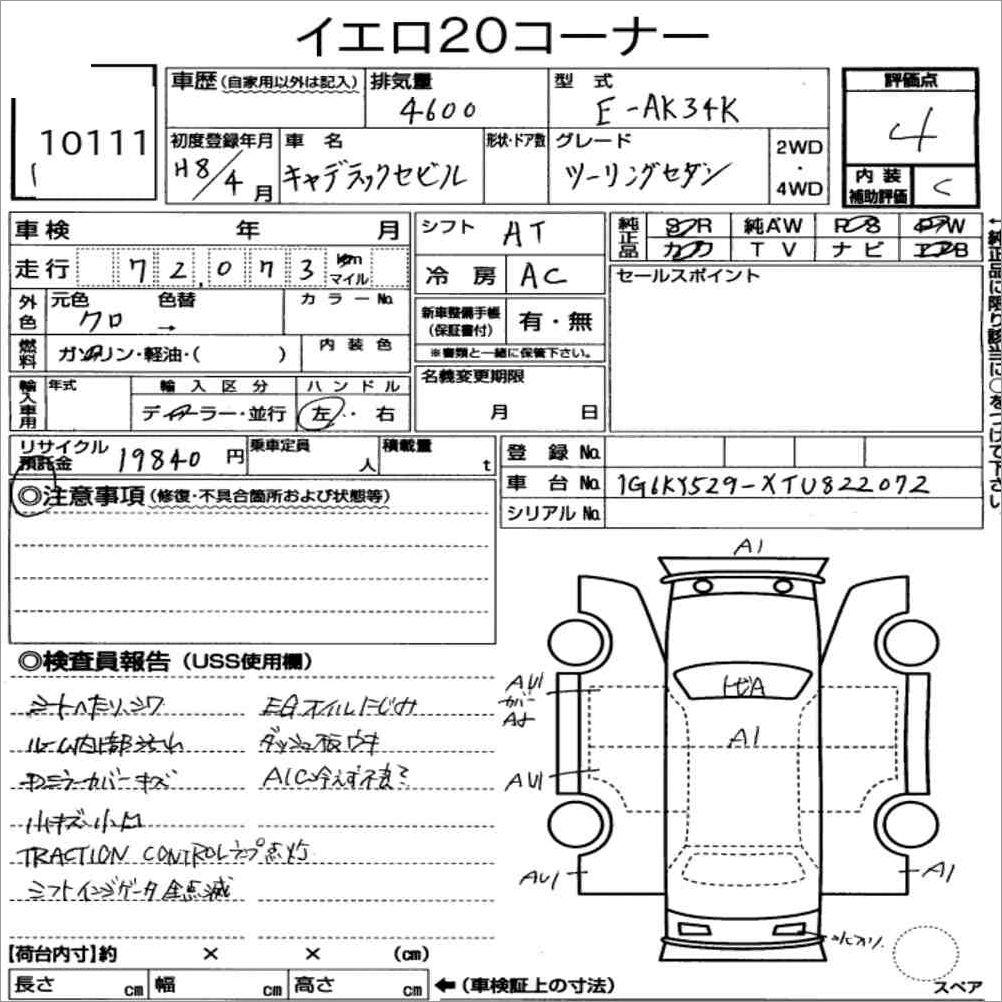 イエロ20コーナー
10111
車歴 (自家用以外は記入)
排気量
4600
型式
E-AK34K
評価点
4
初度登録年月
H8/4月
車名
キャデラックセビル
形状・ドア数
グレード
ツーリングセダン
2WD・4WD
内装補助評価
C
車検 年 月
走行 72,073 km マイル
外色
元色
クロ
色替
→
カラーNo.
燃料
ガソリン・軽油・( )
内装色
輸入車用
年式
輸入区分
ディーラー・並行
ハンドル
左・右
シフト
AT
冷房
AC
新車整備手帳(保証書付)
有・無
※書類と一緒に保管下さい。
名義変更期限
月 日
純正品
SR 純AW PS PW
カワ TV ナビ エアB
セールスポイント
←純正品に限り該当に○をつけて下さい。
リサイクル預託金
19840円
乗車定員
人
積載量
t
登録No.
車台No.
1G6KY529-XTU822072
シリアルNo.
◎注意事項 (修復・不具合箇所および状態等)
◎検査員報告 (USS使用欄)
シートヘたり、シワ
ルーム内上部汚れ
キズ
小キズ小凹
TRACTION CONTROLランプ点灯
シフトインジゲータ全点滅
EGオイルにじみ
ダッシュ板ウキ
A/C冷えず
A1
AU1
トビA
A1
AU1
AU1
A1
【荷台内寸】約 × × (cm)
長さ cm
幅 cm
高さ cm
←(車検証上の寸法)
スペア